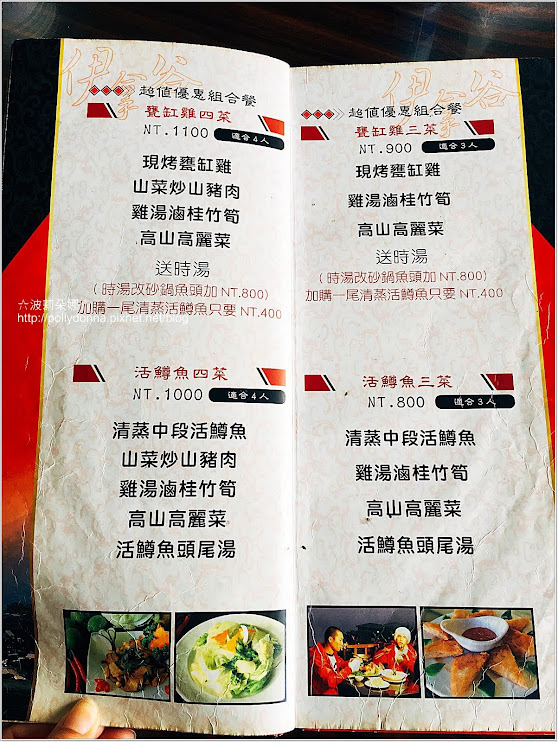 伊家谷
超值優惠組合餐
甕缸雞四菜
NT.1100 適合4人
現烤甕缸雞
山菜炒山豬肉
雞湯滷桂竹筍
高山高麗菜
送時湯
(時湯改砂鍋魚頭加NT.800)
加購一尾清蒸活鱒魚只要NT.400
活鱒魚四菜
NT.1000 適合4人
清蒸中段活鱒魚
山菜炒山豬肉
雞湯滷桂竹筍
高山高麗菜
活鱒魚頭尾湯
伊家谷
超值優惠組合餐
甕缸雞三菜
NT.900 適合3人
現烤甕缸雞
雞湯滷桂竹筍
高山高麗菜
送時湯
(時湯改砂鍋魚頭加NT.800)
加購一尾清蒸活鱒魚只要NT.400
活鱒魚三菜
NT.800 適合3人
清蒸中段活鱒魚
雞湯滷桂竹筍
高山高麗菜
活鱒魚頭尾湯
六波莉朵娜
http://pollydonna.pixnet.net/blog